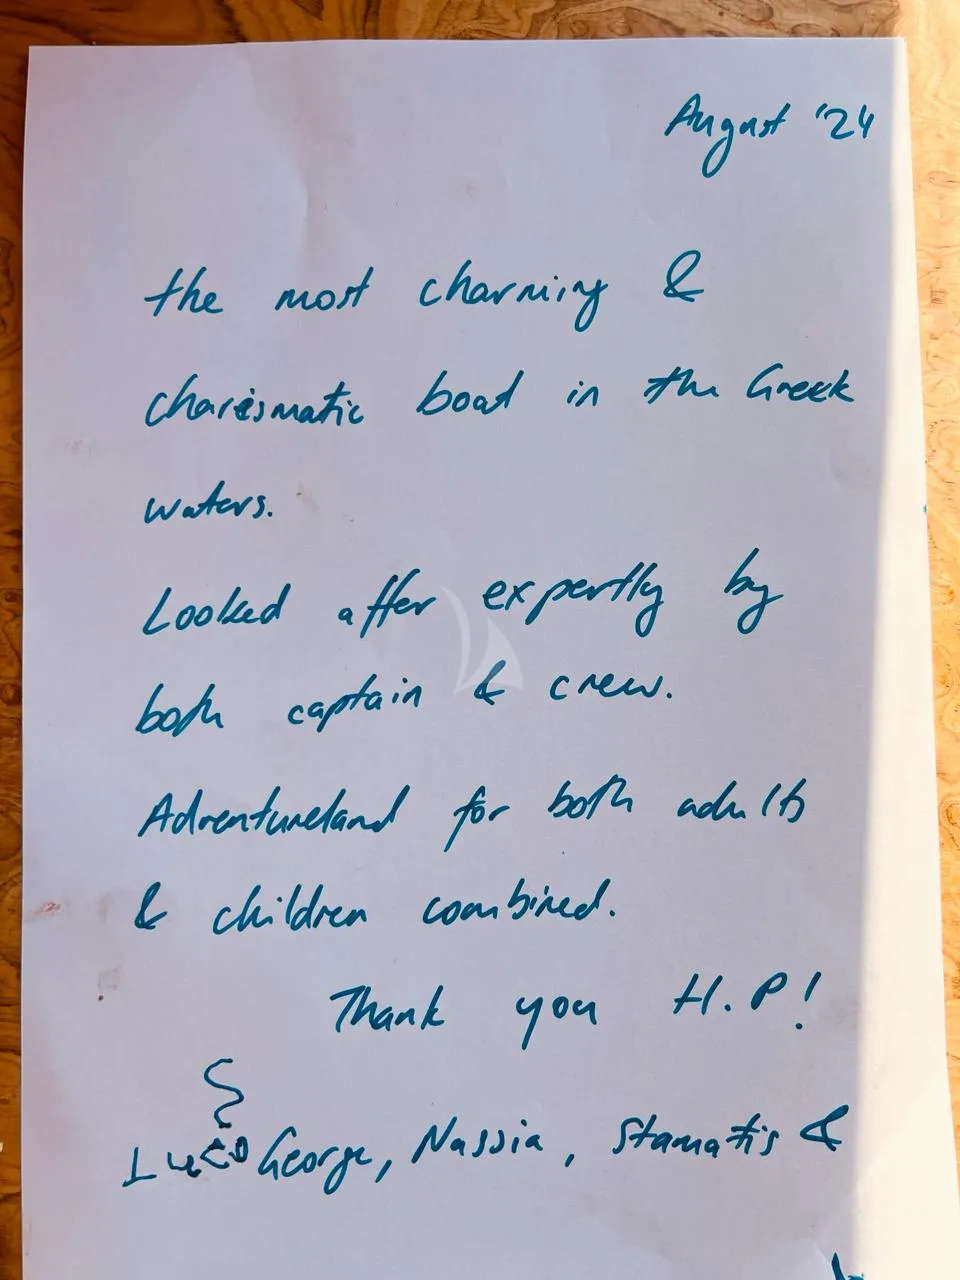 August '24
the most charming &
charismatic boat in the Greek
waters.
Looked after expertly by
both captain & crew.
Adventureland for both adults
& children combined.
Thank you H.P!
George, Nassia, Stamatis &